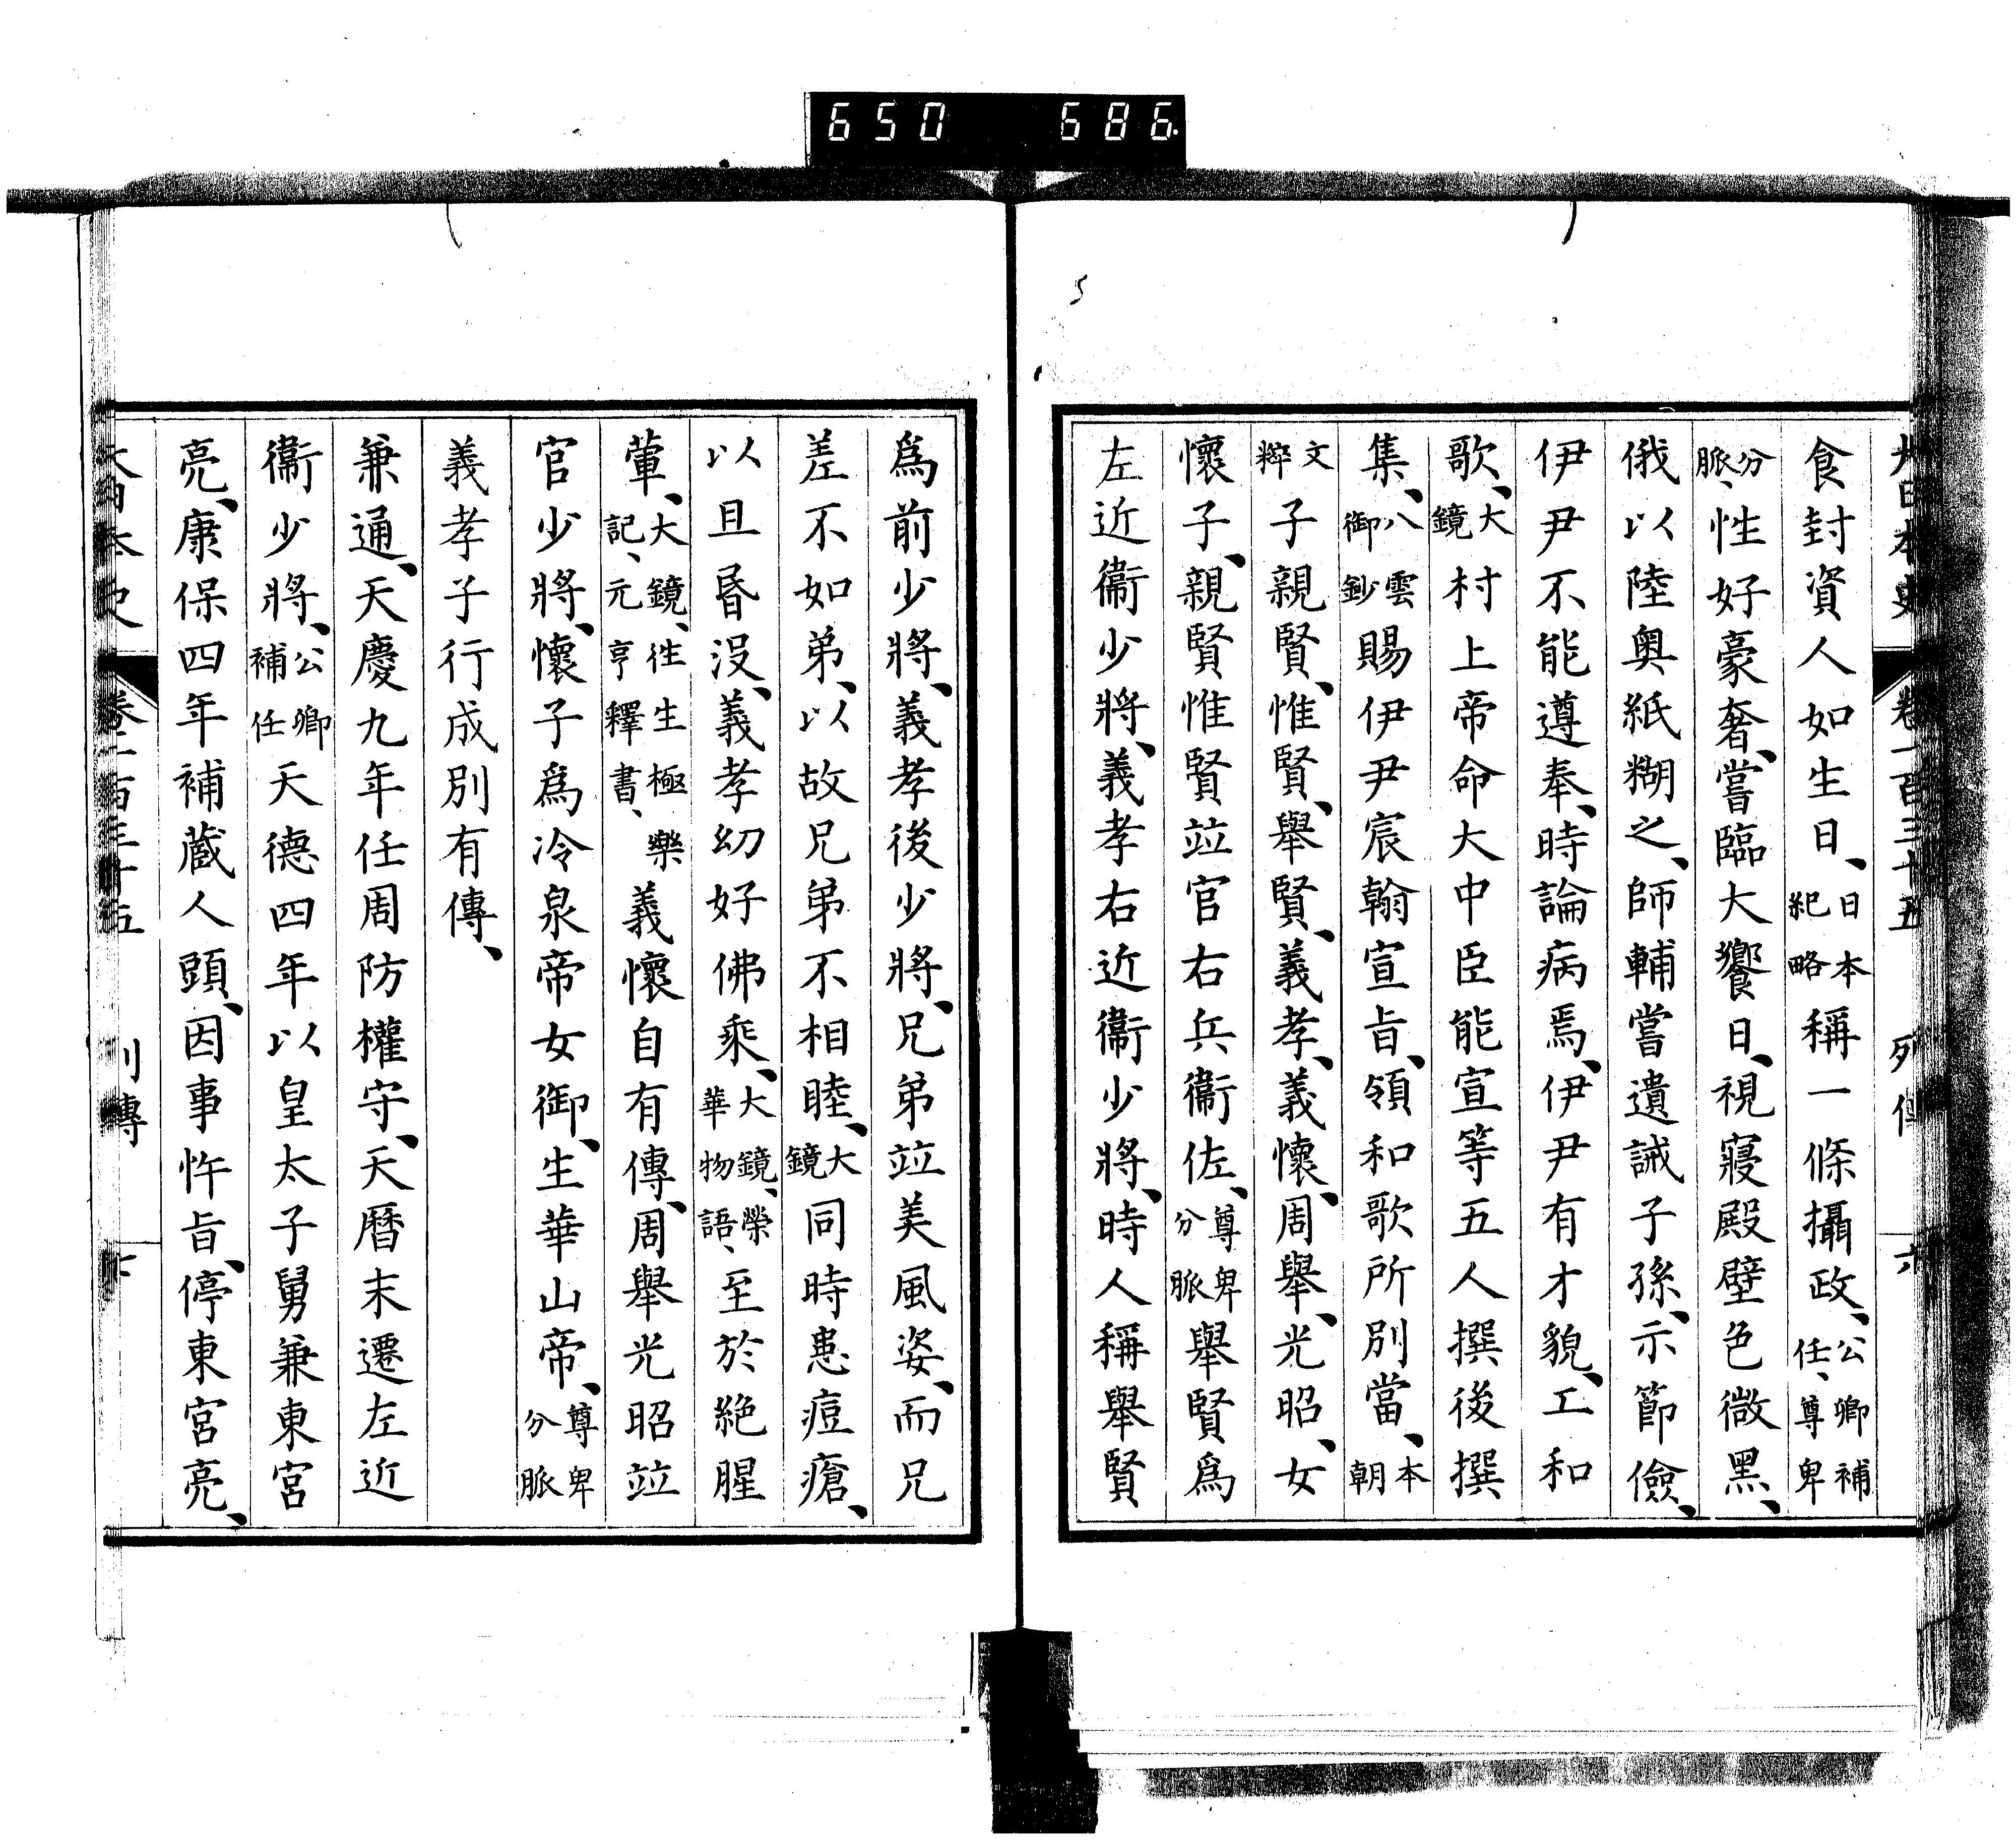 650 686
大日本史 卷一百三十五 列傳 六
食封資人如生日、日本紀略稱一條攝政、公卿補任、尊卑
分脈、性好豪奢、嘗臨大饗日、視寢殿壁色微黑、
俄以陸奧紙糊之、師輔嘗遺誡子孫、示節儉、
伊尹不能遵奉、時論病焉、伊尹有才貌、工和
歌、大鏡村上帝命大中臣能宣等五人撰後撰
集、八雲御鈔賜伊尹宸翰宣旨、領和歌所別當、本朝
文粹子親賢、惟賢、舉賢、義孝、義懷、周舉、光昭、女
懷子、親賢惟賢竝官右兵衞佐、尊卑分脈舉賢爲
左近衞少將、義孝右近衞少將、時人稱舉賢
爲前少將、義孝後少將、兄弟竝美風姿、而兄
差不如弟、以故兄弟不相睦、大鏡同時患痘瘡、
以旦昏沒、義孝幼好佛乘、大鏡、榮華物語、至於絶腥
葷、大鏡、往生極樂記、元亨釋書、義懷自有傳、周舉光昭竝
官少將、懷子爲冷泉帝女御、生華山帝、尊卑分脈
義孝子行成別有傳、
兼通、天慶九年任周防權守、天曆末遷左近
衞少將、公卿補任天德四年以皇太子舅兼東宮
亮、康保四年補藏人頭、因事忤旨、停東宮亮、
大日本史 卷一百三十五 列傳